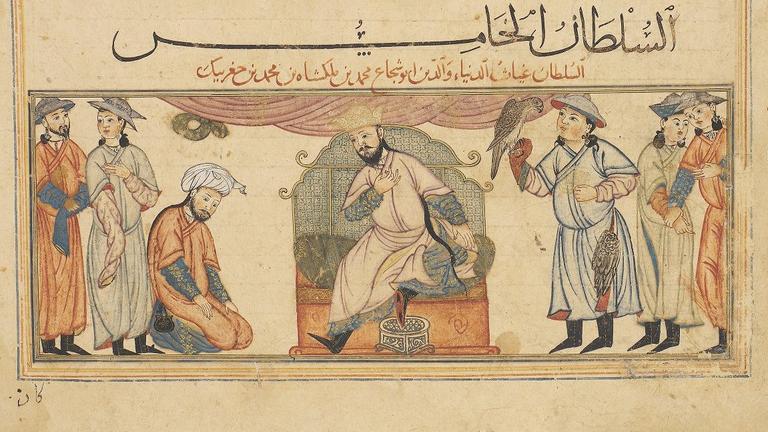 السلطان الخامس
السلطان غياث الدنياء والدين ابو شجاع محمد بن ملكشاه بن محمد بن جغريبك
كان